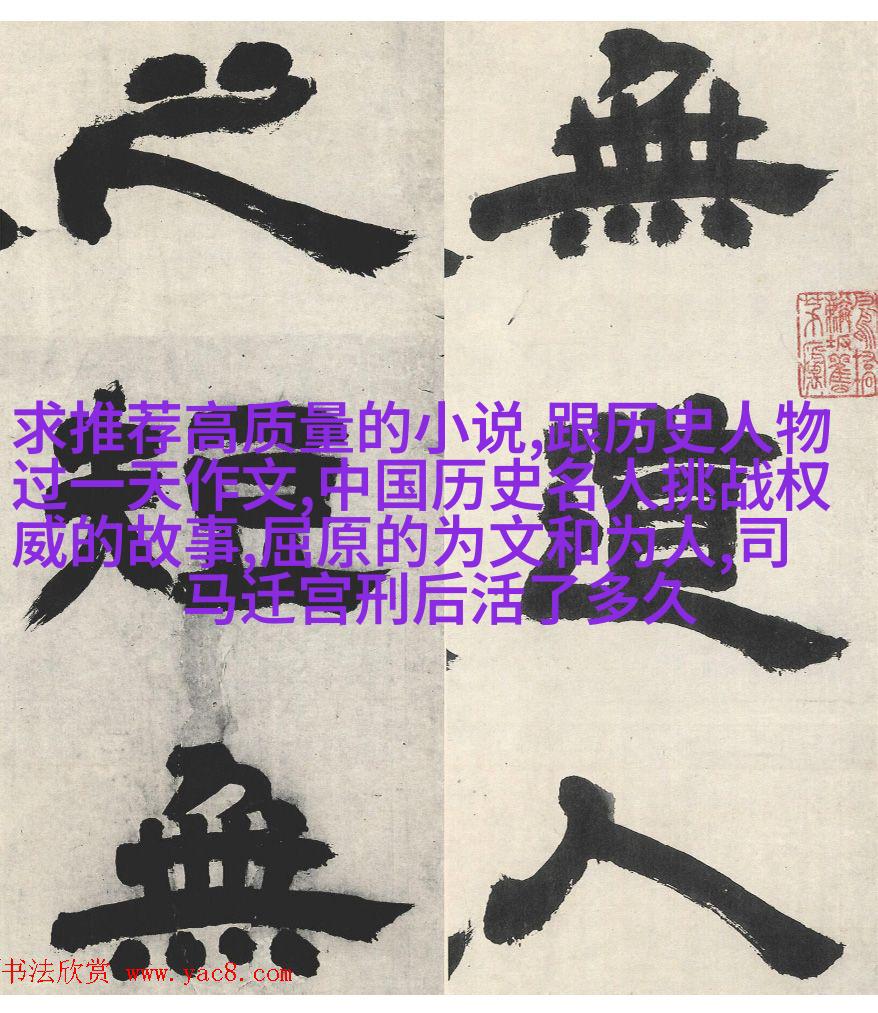 無道人
之短無
求推荐高质量的小说,跟历史人物
过一天作文,中国历史名人挑战权
威的故事,屈原的为文和为人,司
马迁宫刑后活了多久
书法欣赏 www.yac8.com